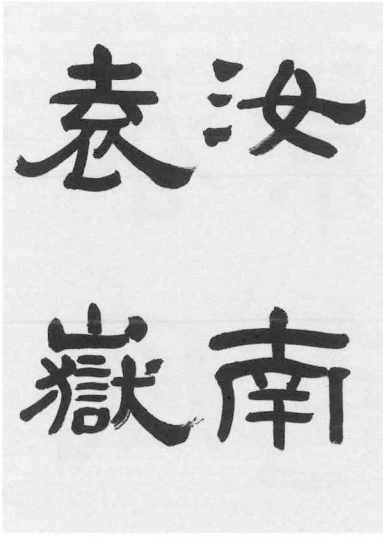 汝南
袁嶽